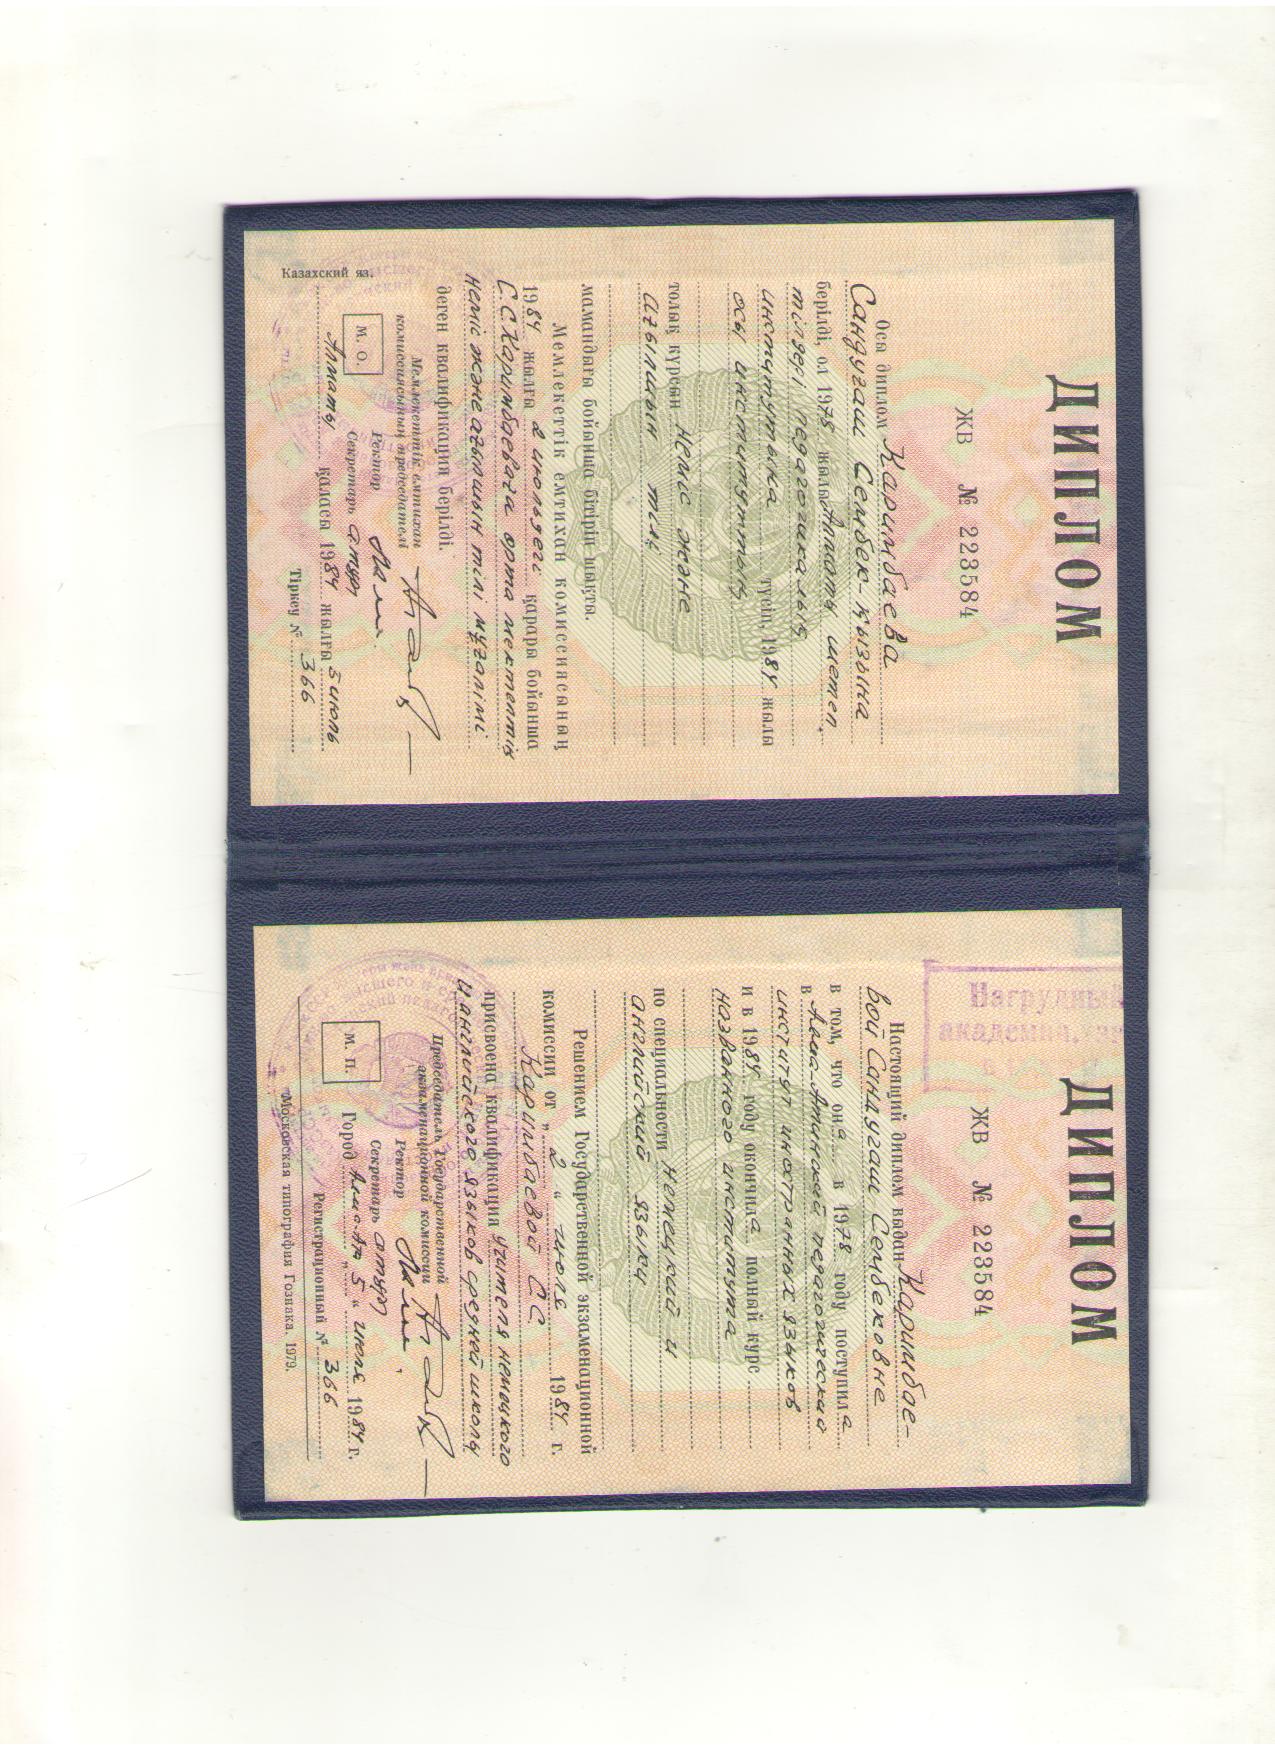 ДИПЛОМ
ЖВ № 223584
Осы диплом Каримбаева
Сандугаш Сембек-қызына
берілді, ол 1978 жылы Алматы шетел
тілдері педагогикалық
институтына түсіп, 1984 жылы
осы институттың
толық курсын неміс және
ағылшын тілі
мамандығы бойынша бітіріп шықты.
Мемлекеттік емтихан комиссиясының
1984 жылғы 2 июльдегі қарары бойынша
С.С.Каримбаеваға орта мектептің
неміс және ағылшын тілі мұғалімі
деген квалификация берілді.
Мемлекеттік емтихан
комиссиясының председателі
Ректор
М. О.
Секретарь
Алматы қаласы 1984 жылғы 5 июль
Тіркеу № 366
Казахский яз.
Нагрудный
академич. зн
ДИПЛОМ
ЖВ № 223584
Настоящий диплом выдан Каримбае-
вой Сандугаш Сембековне
в том, что она в 1978 году поступила
в Алма-Атинский педагогический
институт иностранных языков
и в 1984 году окончила полный курс
названного института
по специальности немецкий и
английский языки
Решением Государственной экзаменационной
комиссии от „2“ июля 1984 г.
Каримбаевой С.С.
присвоена квалификация учителя немецкого
и английского языков средней школы
Председатель Государственной
экзаменационной комиссии
Ректор
М. П.
Секретарь
Город Алма-Ата „5“ июля 1984 г.
Регистрационный № 366
Московская типография Гознака. 1979.